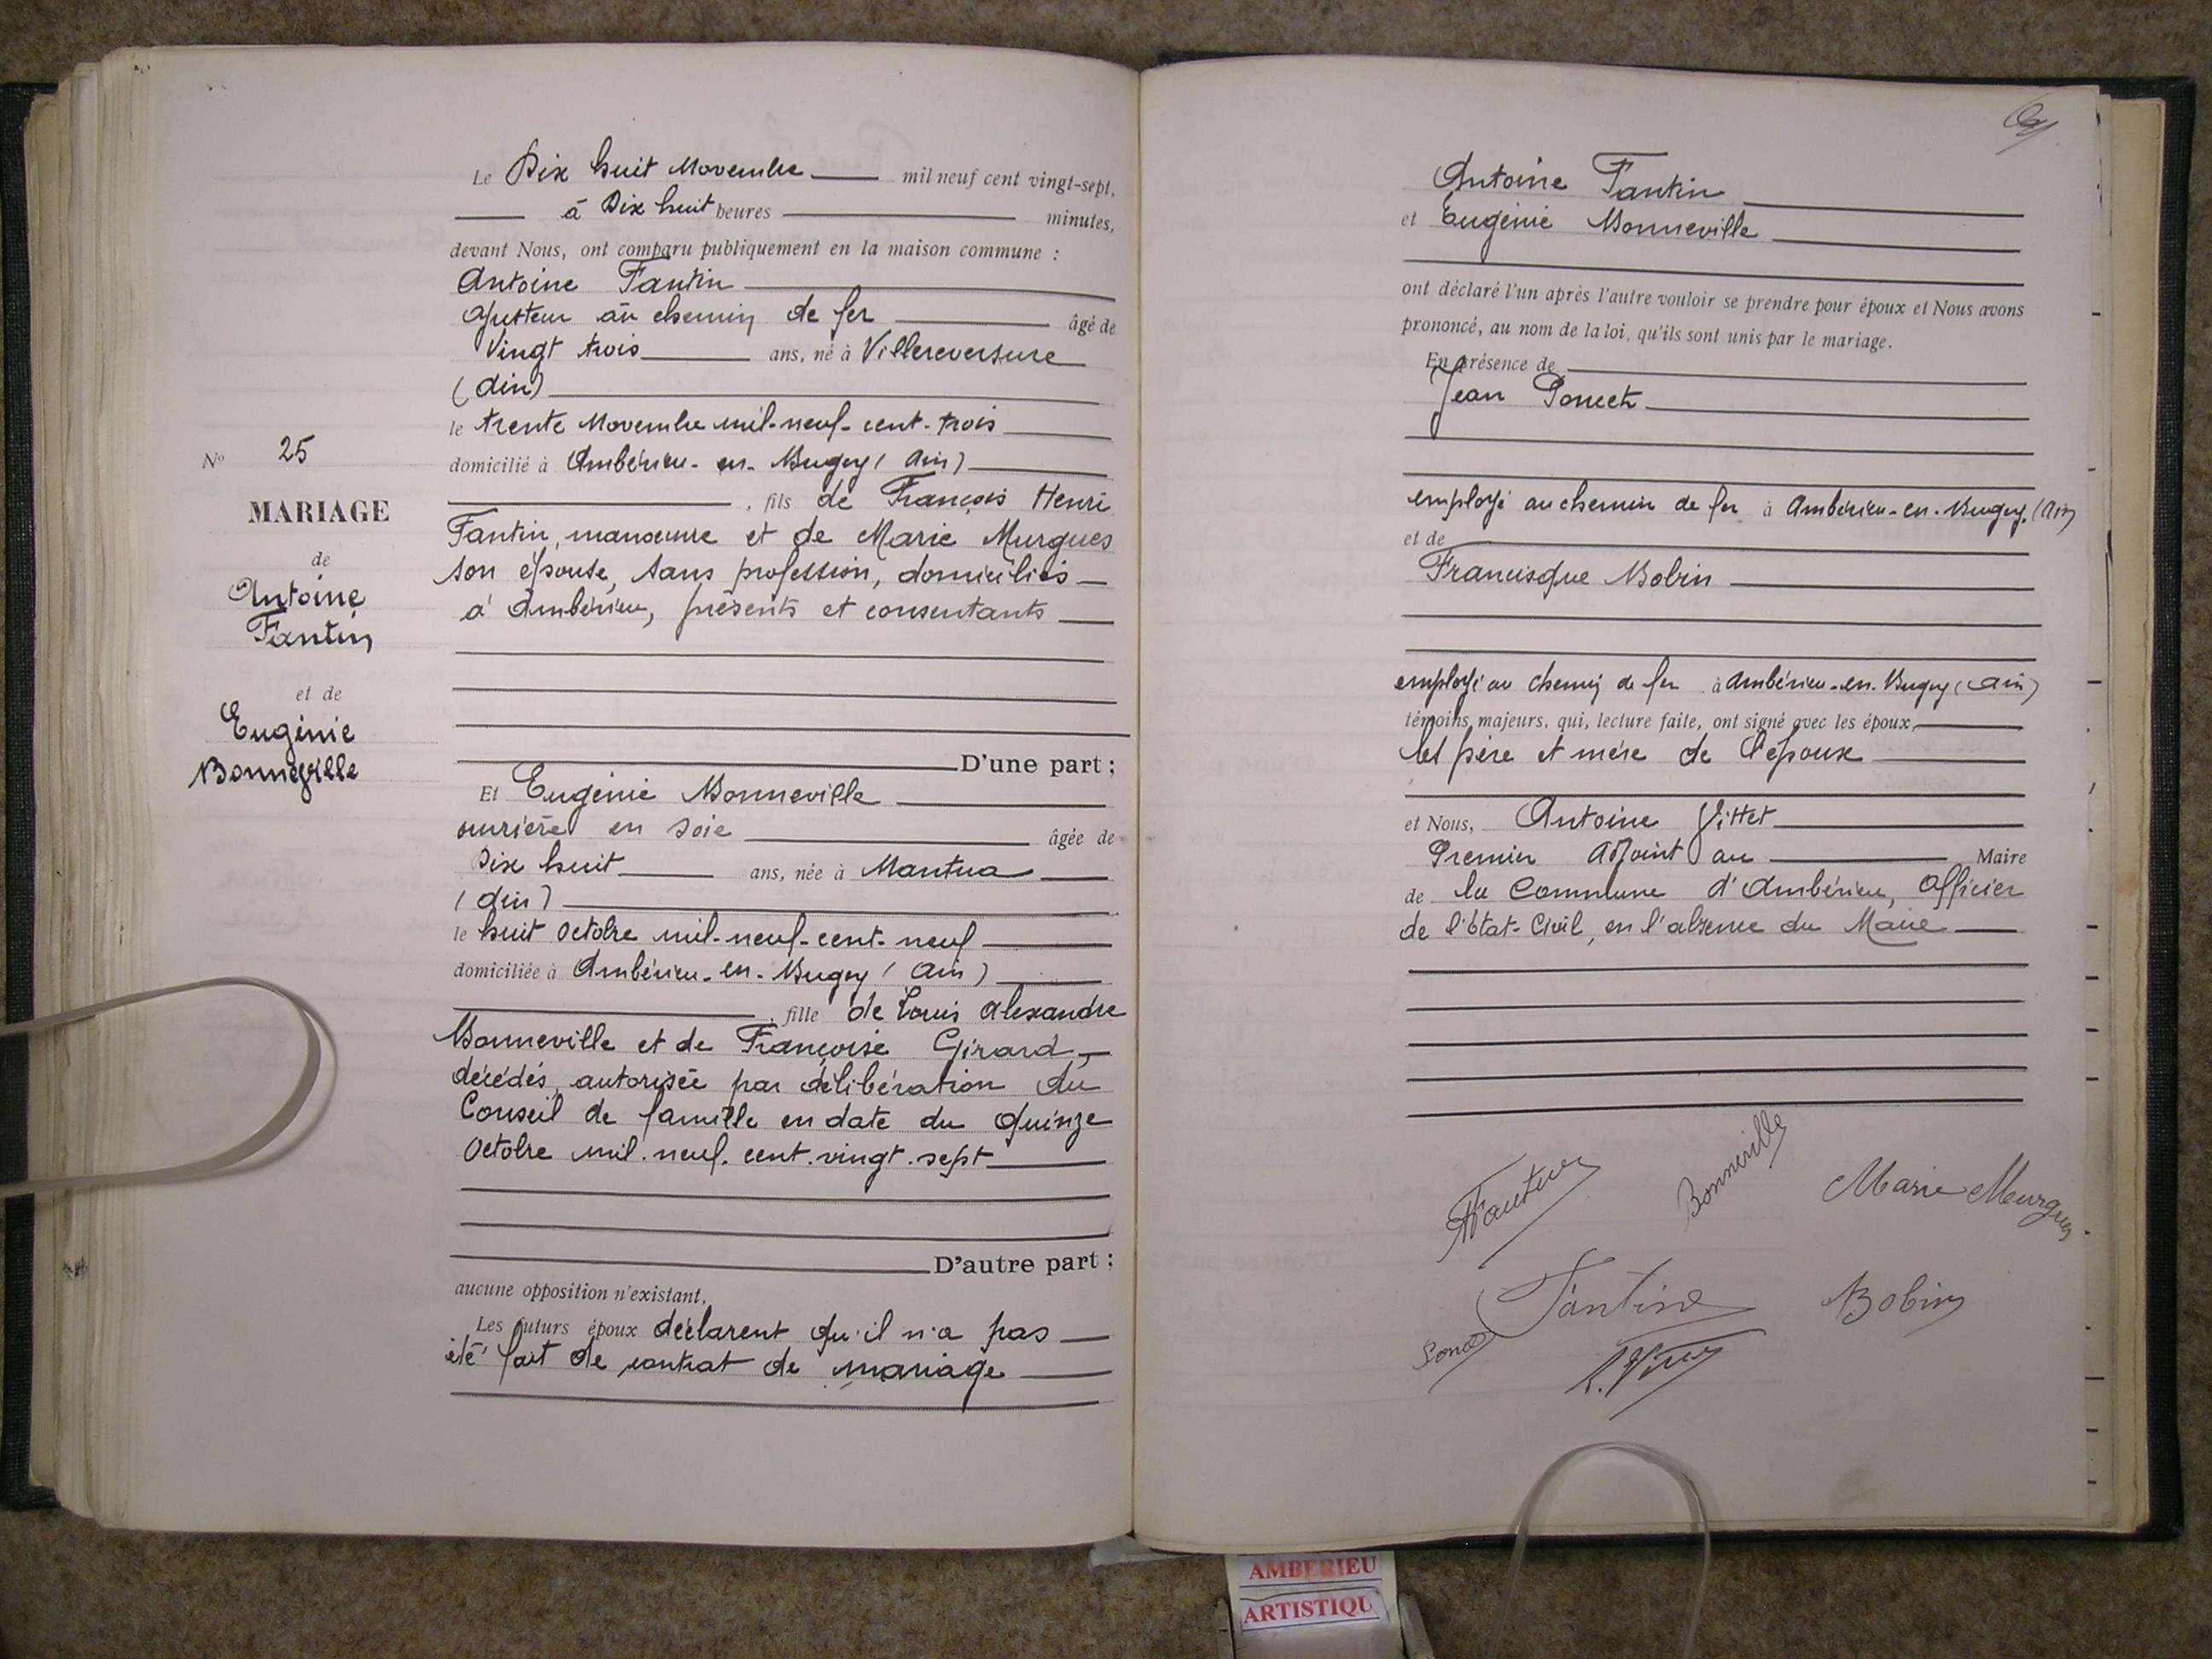 Le Dix huit Novembre mil neuf cent vingt-sept,
à Dix huit heures minutes,
devant Nous, ont comparu publiquement en la maison commune :
Antoine Fantin
ajusteur au chemin de fer âgé de
Vingt trois ans, né à Villereversure
(Ain)
le trente Novembre mil-neuf-cent-trois
domicilié à Ambérieu-en-Bugey (Ain)
, fils de François Henri
Fantin, manœuvre et de Marie Murgues
son épouse, sans profession, domiciliés
à Ambérieu, présents et consentants
N° 25
MARIAGE
de
Antoine
Fantin
et de
Eugénie
Bonneville
D'une part ;
Et Eugénie Bonneville
ouvrière en soie âgée de
Dix huit ans, née à Nantua
(Ain)
le huit Octobre mil-neuf-cent-neuf
domiciliée à Ambérieu-en-Bugey (Ain)
, fille de Louis Alexandre
Bonneville et de Françoise Girard,
décédés, autorisée par délibération du
Conseil de famille en date du quinze
Octobre mil.neuf.cent.vingt.sept
D'autre part ;
aucune opposition n'existant,
Les futurs époux déclarent qu'il n'a pas
été fait de contrat de mariage
Antoine Fantin
et Eugénie Bonneville
ont déclaré l'un après l'autre vouloir se prendre pour époux et Nous avons
prononcé, au nom de la loi, qu'ils sont unis par le mariage.
En présence de
Jean
employé au chemin de fer à Ambérieu-en-Bugey.(Ain)
et de
Francisque Bobin
employé au chemin de fer à Ambérieu-en-Bugey (Ain)
témoins majeurs, qui, lecture faite, ont signé avec les époux,
les père et mère de l'époux
et Nous, Antoine Vittet
Premier Adjoint au Maire
de la Commune d'Ambérieu, Officier
de l'état-Civil, en l'absence du Maire
Fantin
Bonneville
Marie Murgues
Fantin
Bobin
AMBERIEU
ARTISTIQU